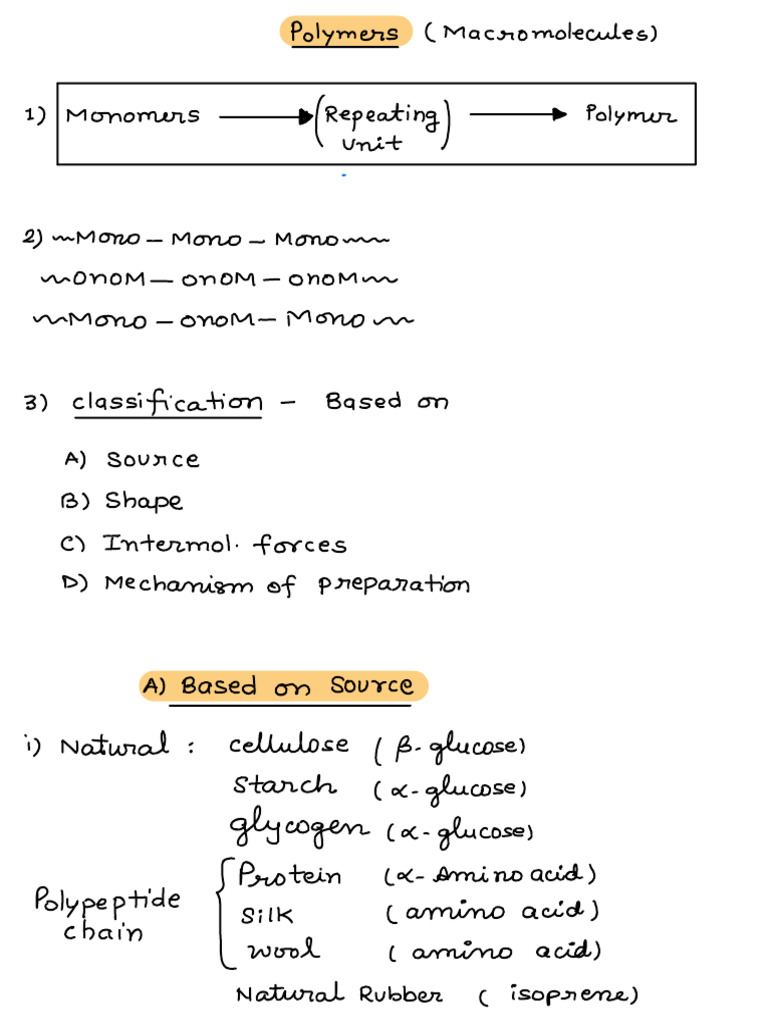 Polymers (Macromolecules)
1) Monomers → (Repeating unit) → Polymer
2) ~Mono – Mono – Mono~
~onoM – onoM – onoM~
~Mono – onoM – Mono~
3) classification – Based on
A) Source
B) Shape
C) Intermol. forces
D) Mechanism of preparation
A) Based on Source
i) Natural : cellulose (β-glucose)
Starch (α-glucose)
glycogen (α-glucose)
Polypeptide chain { Protein (α-Amino acid)
Silk (amino acid)
wool (amino acid)
Natural Rubber (isoprene)